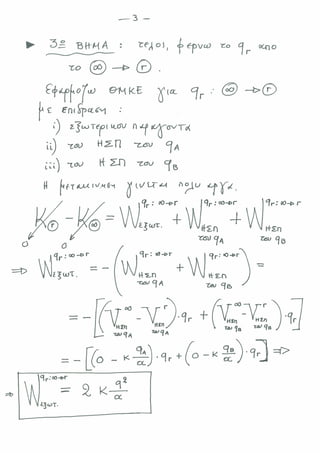 — 3 —
► 3º ΒΗΜΑ : τέλος, φέρνω το qr απο
το ∞ → r .
Εφαρμόζω ΘΜΚΕ για qr : ∞ → r
με επίδραση :
i) εξωτερικού παράγοντα
ii) του ΗΣΠ του qA
iii) του ΗΣΠ του qB
Η μετακίνηση γίνεται πολύ αργά.
K r - K ∞ = W εξωτ. qr:∞→r + W ΗΣΠ του qA qr:∞→r + W ΗΣΠ του qB qr:∞→r
0 0
⇒ W εξωτ. qr:∞→r = - ( W ΗΣΠ του qA qr:∞→r + W ΗΣΠ του qB qr:∞→r ) =
= - [ ( V∞ ΗΣΠ του qA - Vr ΗΣΠ του qA ) · qr + ( V∞ ΗΣΠ του qB - Vr ΗΣΠ του qB ) · qr ]
= - [ ( 0 - K qA/α ) · qr + ( 0 - K qB/α ) · qr ] ⇒
⇒ W εξωτ. qr:∞→r = 2 K q²/α